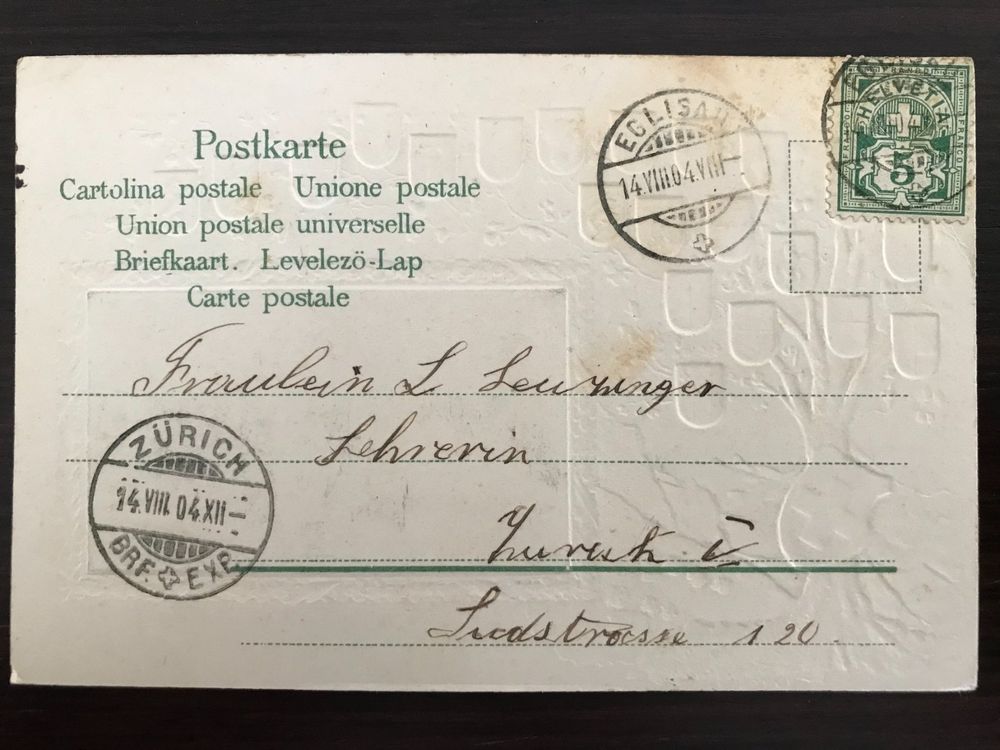 Postkarte
Cartolina postale Unione postale
Union postale universelle
Briefkaart. Levelezö-Lap
Carte postale
EGLISAU
14.VIII.04.VIII–
HELVETIA
FRANCO
5
Fräulein L Leuzinger
Lehrerin
Zürich V
Südstrasse 120.
ZÜRICH
14.VIII.04.XII–
BRF. EXP.